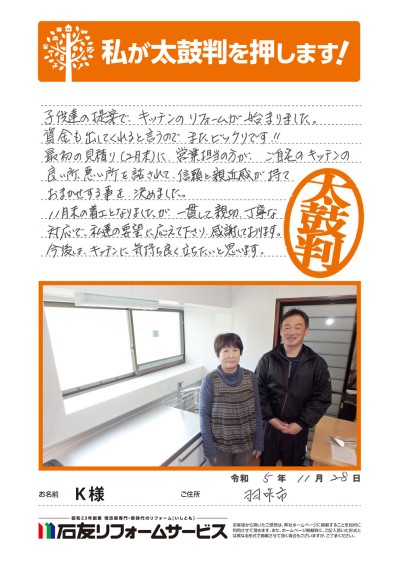 私が太鼓判を押します!
子供達の提案で、キッチンのリフォームが始まりました。
資金も出してくれると言うので、またビックリです!!
最初の見積り(2月末)に、営業担当の方が、ご自宅のキッチンの
良い所、悪い所を話されて、信頼と親近感が持て
おまかせする事を、決めました。
11月末の着工となりましたが、一貫して親切、丁寧な
対応で、私達の要望に応えて下さり、感謝しております。
今後は、キッチンに気持ち良く立ちたいと思います。
太鼓判
令和 5年 11月 28日
お名前 K様 ご住所 羽咋市
昭和23年創業 増改築専門・新時代のリフォーム[いしとも]
石友リフォームサービス
お客様から頂いたご感想は、弊社ホームページに掲載することを目的に
利用させて頂きます。また、ホームページ掲載時に、ご記入頂いた形式と
は異なる形式で掲載させて頂く場合もございますが、ご了承ください。